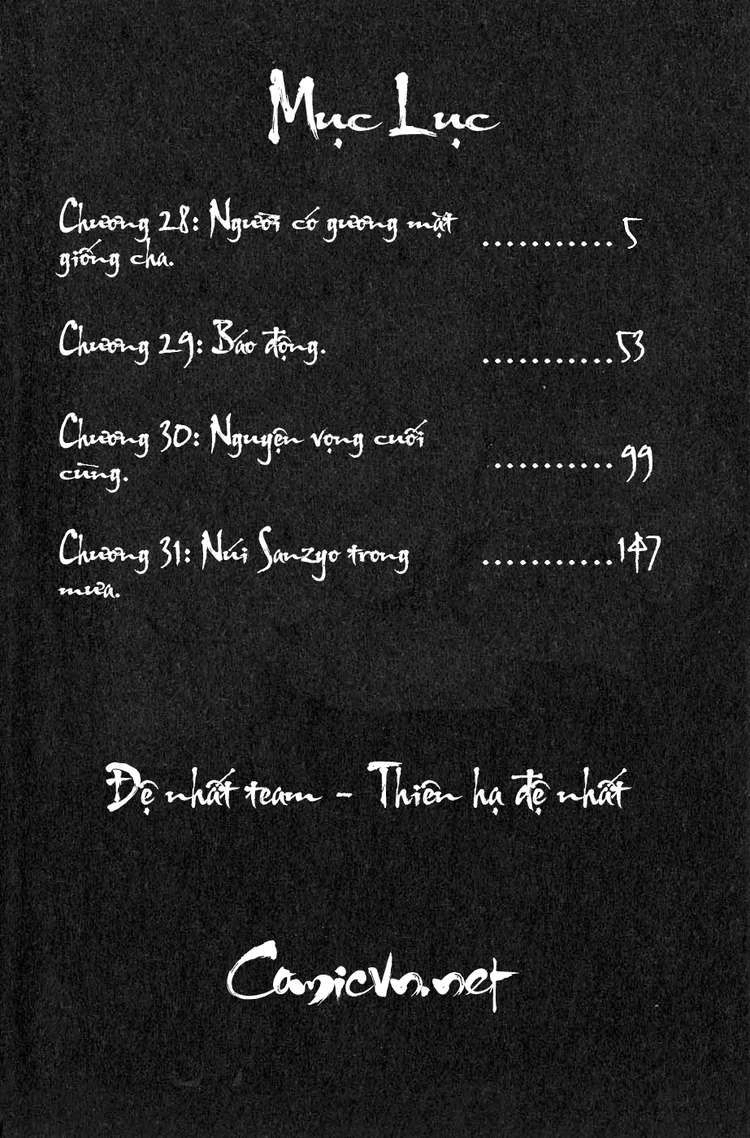 Mục Lục
Chương 28: Người có gương mặt
giống cha.
........... 5
Chương 29: Báo động.
...........53
Chương 30: Nguyện vọng cuối
cùng.
.......... 99
Chương 31: Núi Sanzyo trong
mưa.
...........147
Đệ nhất team - Thiên hạ đệ nhất
Comicvn.net